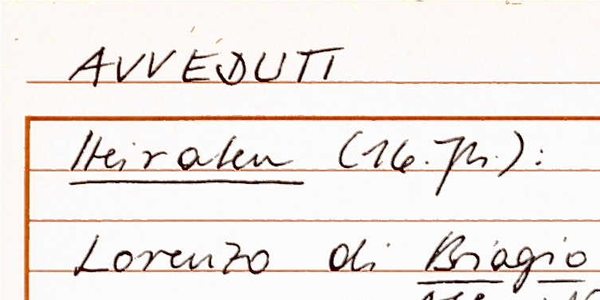 AVVEDUTI
Heiraten (16. Jh.):
Lorenzo di Biagio